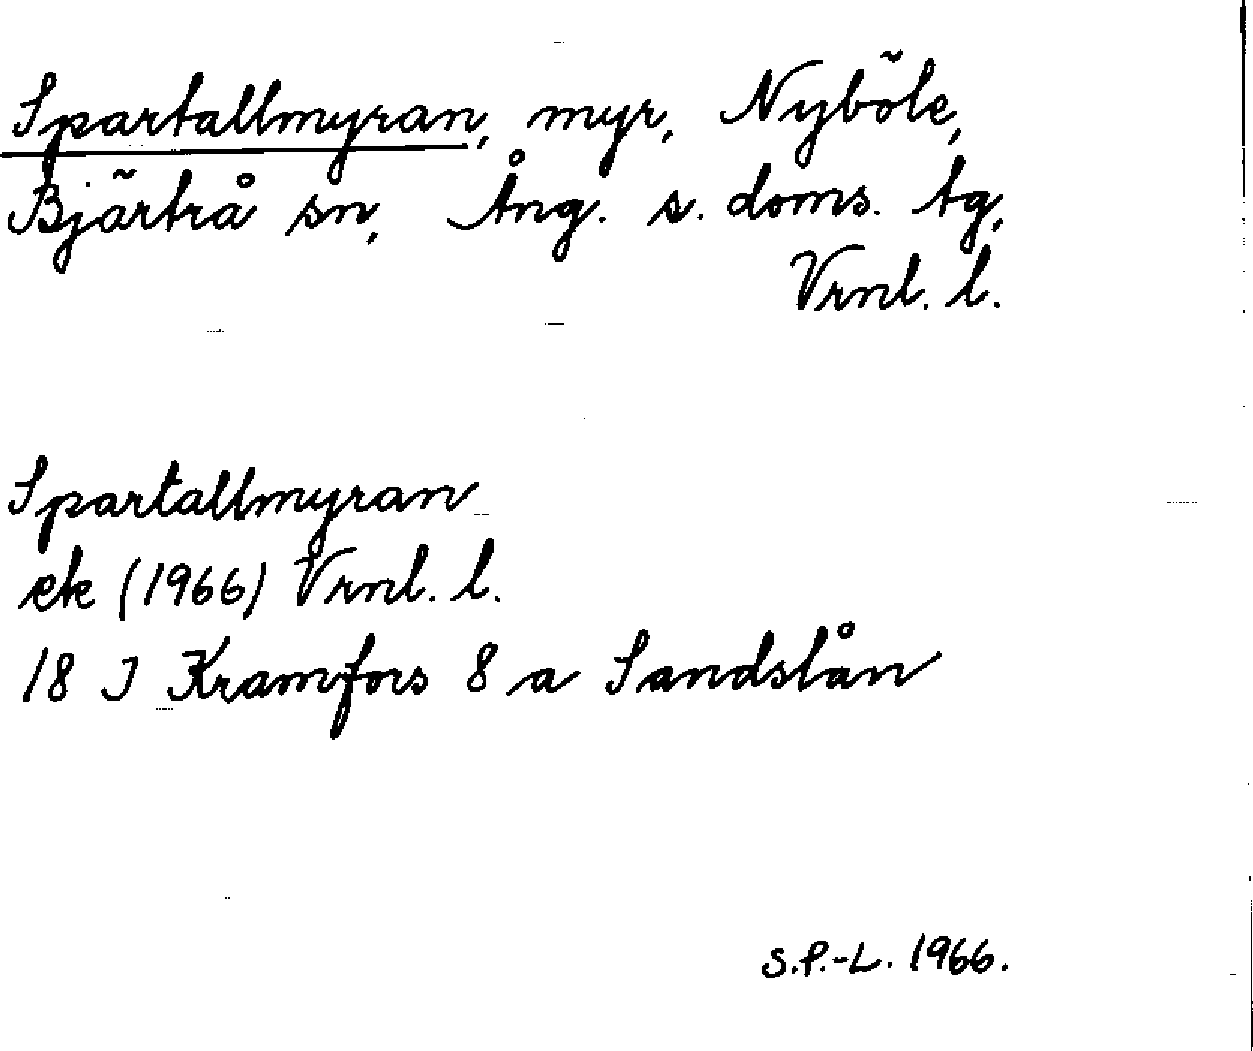 Spartallmyran, myr, Nyböle,
Bjärtrå sn, Ång. s. doms. tg,
Vrnl. l.
Spartallmyran
ek (1966) Vrnl. l.
18 J Kramfors 8 a Sandslån
S.P.-L. 1966.